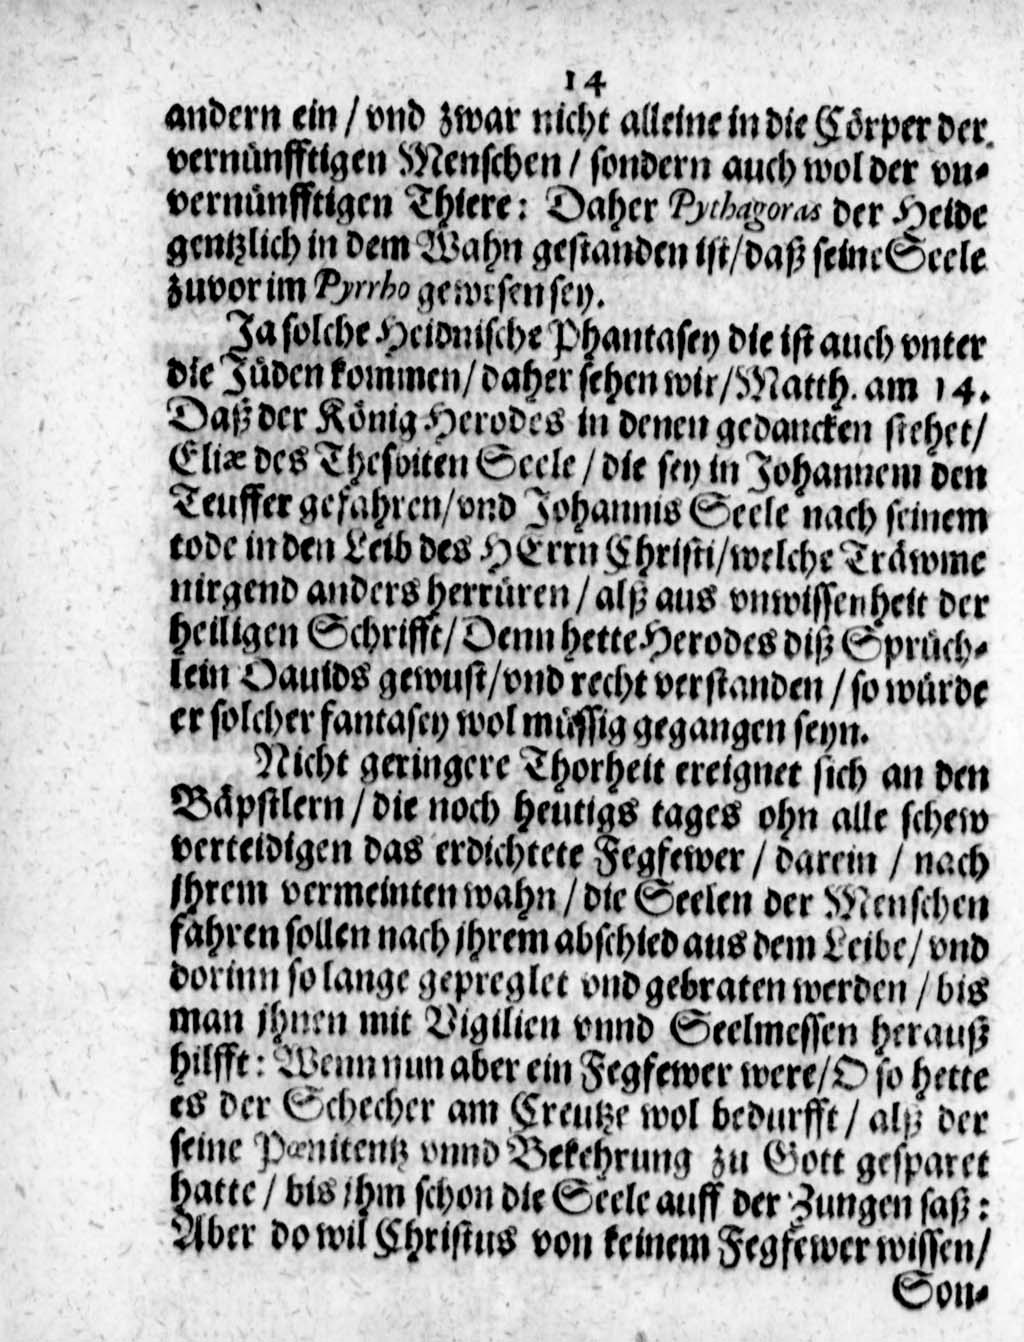 14
andern ein / vnd zwar nicht alleine in die Cörper der
vernünfftigen Menschen / sondern auch wol der vn-
vernünfftigen Thiere: Daher Pythagoras der Heide
gentzlich in dem Wahn gestanden ist/ daß seine Seele
zuvor im Pyrrho gewesen sey.
Ja solche Heidnische Phantasey die ist auch vnter
die Jüden kommen/ daher sehen wir/ Matth. am 14.
Daß der König Herodes in denen gedancken stehet/
Eliæ des Thesbiten Seele / die sey in Johannem den
Teuffer gefahren/ vnd Johannis Seele nach seinem
tode in den Leib des HErrn Christi/ welche Träwme
nirgend anders herrüren / alß aus vnwissenheit der
heiligen Schrifft/ Denn hette Herodes diß Sprüch-
lein Dauids gewust/ vnd recht verstanden / so würde
er solcher fantasey wol müssig gegangen seyn.
Nicht geringere Thorheit ereignet sich an den
Bäpstlern / die noch heutigs tages ohn alle schew
verteidigen das erdichtete Fegfewer / darein / nach
jhrem vermeinten wahn / die Seelen der Menschen
fahren sollen nach jhrem abschied aus dem Leibe/ vnd
dorinn so lange gepreglet vnd gebraten werden / bis
man jhnen mit Vigilien vnnd Seelmessen herauß
hilfft: Wenn nun aber ein Fegfewer were/ O so hette
es der Schecher am Creutze wol bedurfft / alß der
seine Pœnitentz vnnd Bekehrung zu Gott gesparet
hatte / bis jhm schon die Seele auff der Zungen saß:
Aber do wil Christus von keinem Fegfewer wissen/
Son-